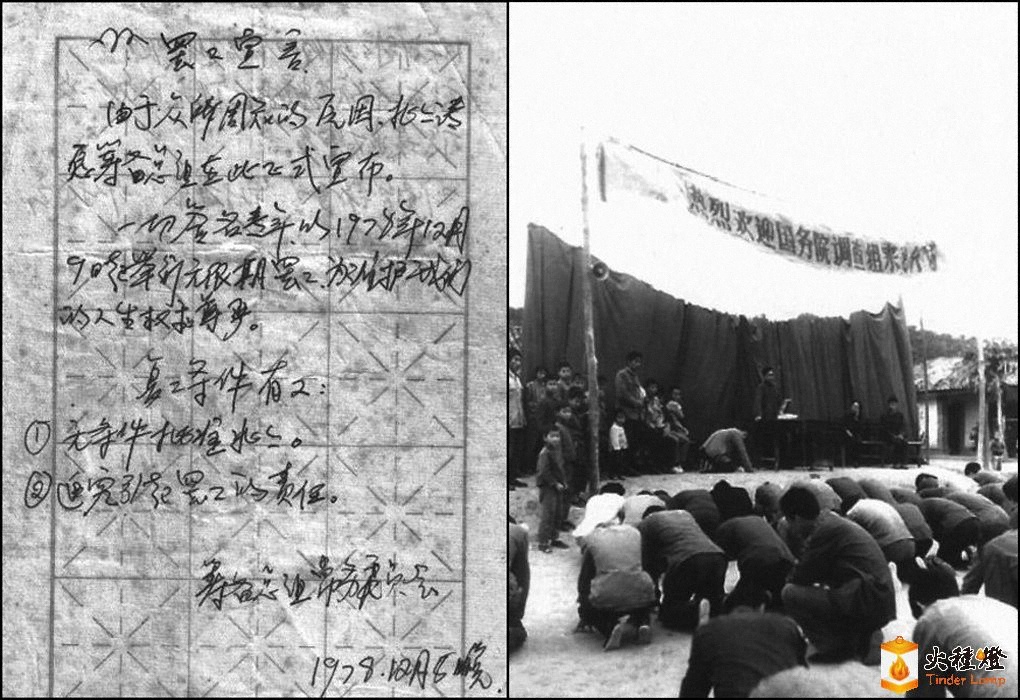 罢工宣言
由于众所周知的原因，北上请
愿筹备总组在此正式宣布。
一切签名青年，从1978年12月
9日起举行无限期罢工，维护我们
的人生权和尊严。
复工条件有二：
① 无条件批准北上。
② 追究引起罢工的责任。
筹备总组常务委员会
1978.12月5 晚
热烈欢迎国务院调查组来
火種燈
Tinder Lamp